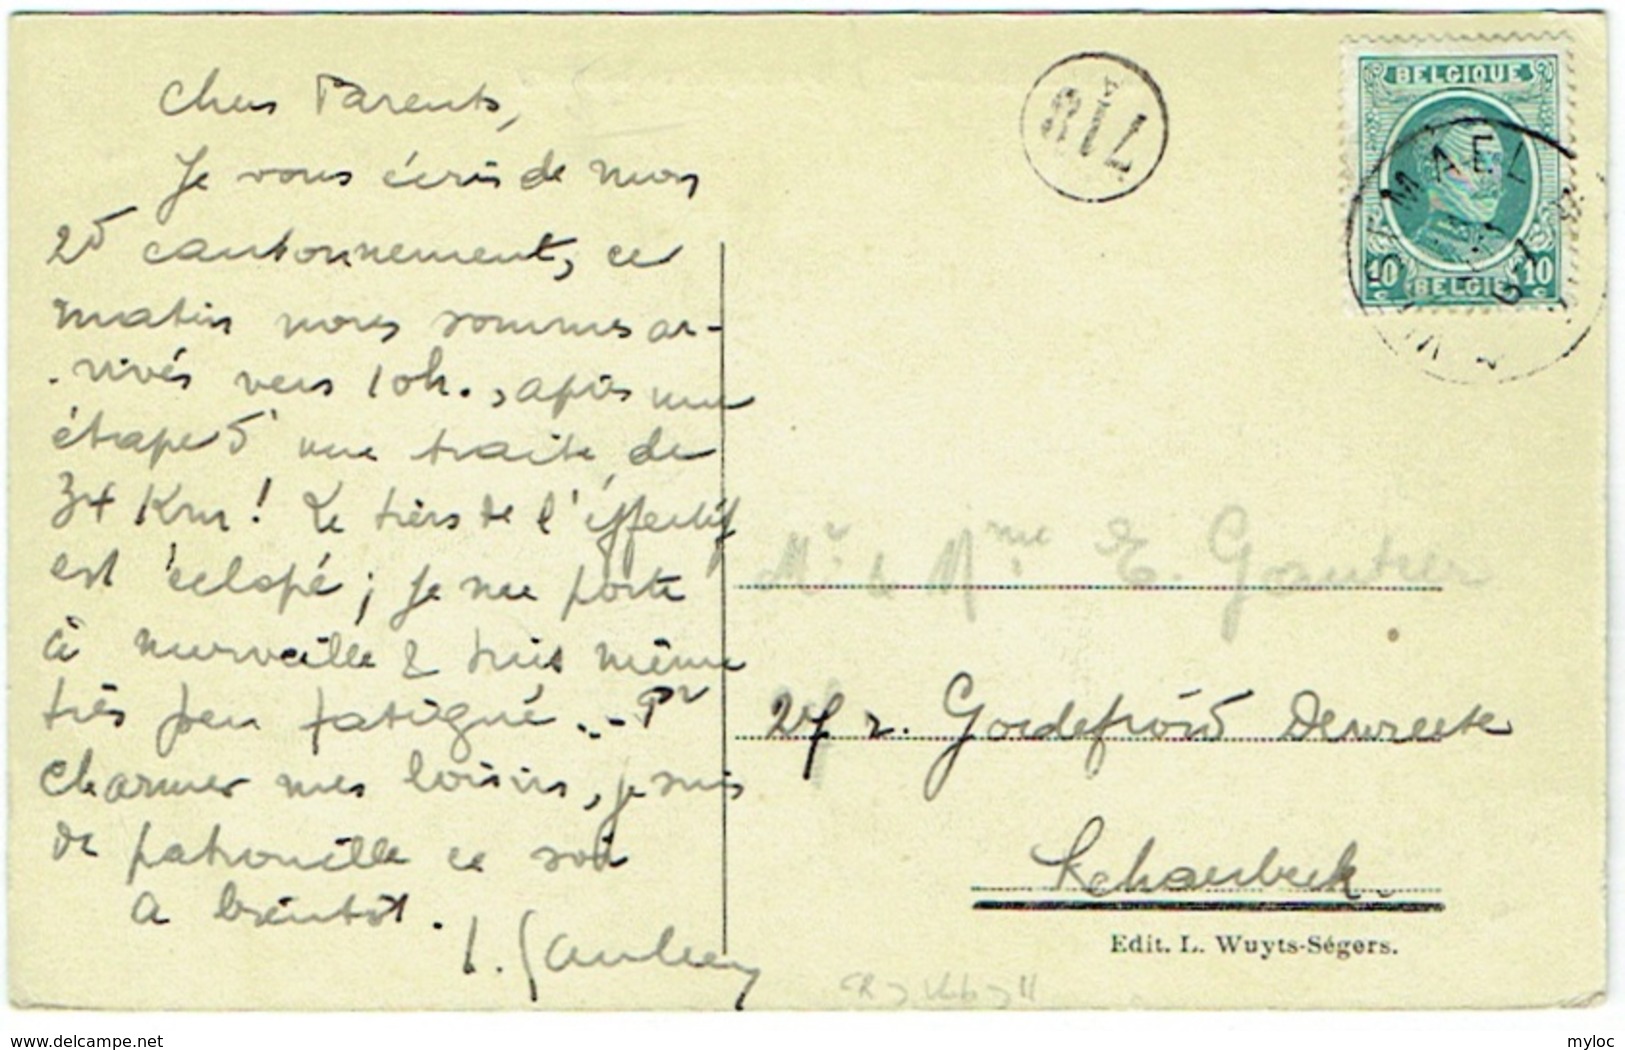 Chers Parents,
Je vous écris de mon
2d cantonnement, ce
matin nous sommes ar-
-rivés vers 10h., après une
étape d'une traite de
34 Km! Le tiers de l'effectif
est éclopé; je me porte
à merveille & suis même
très peu fatigué... Pr
charmer mes loisirs, je suis
de patrouille ce soir
A bientôt.
BELGIQUE
10 10
BELGIË
Mr & Mme E. Gautier
27 r. Godefroid Devreese
Schaerbeek
Edit. L. Wuyts-Ségers.
delcampe.net
myloc